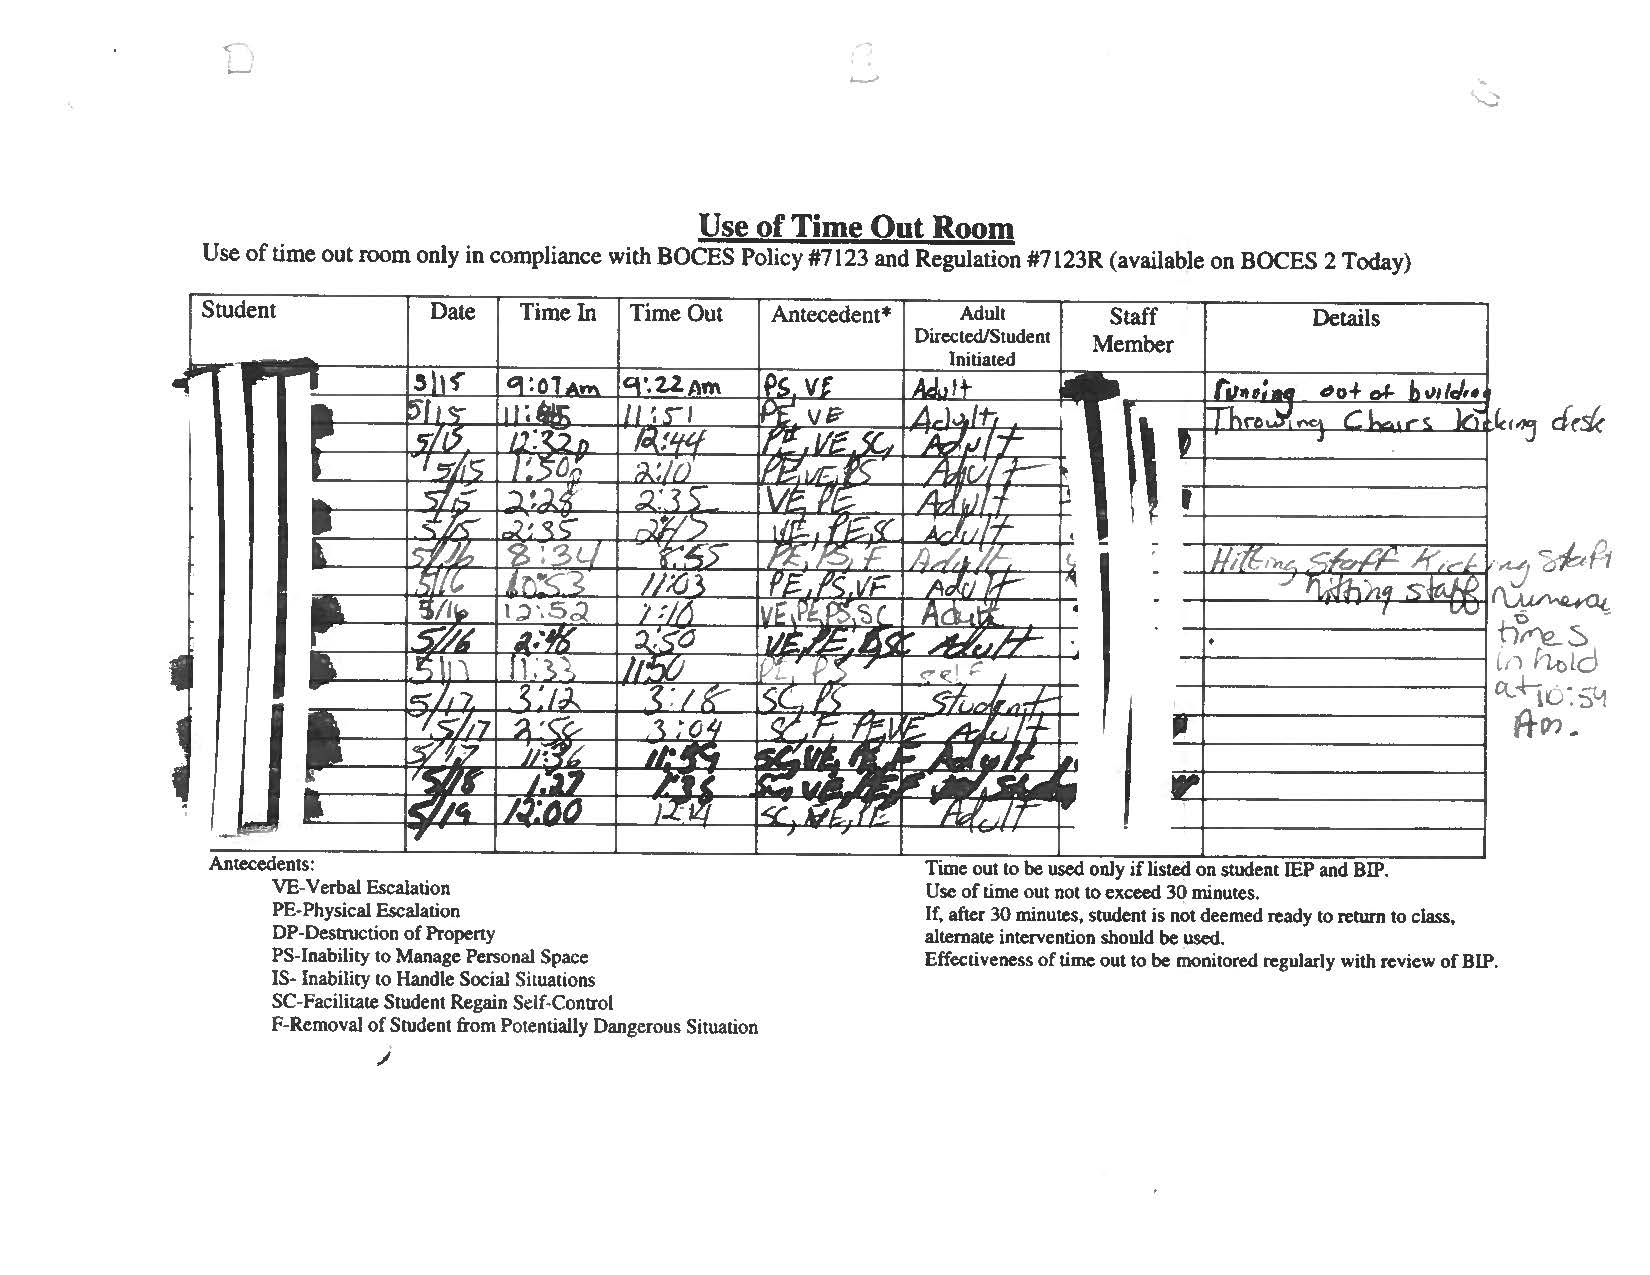 Use of Time Out Room
Use of time out room only in compliance with BOCES Policy #7123 and Regulation #7123R (available on BOCES 2 Today)
Student Date Time In Time Out Antecedent* Adult Directed/Student Initiated Staff Member Details
5/15 9:07 Am 9:22 Am PS, VE Adult running out of building
5/15 11:45 11:51 PE, VE Adult Throwing Chairs Kicking desk
5/15 12:32p 12:44 PE, VE, SC, Adult
5/15 1:50p 2:10 PE, VE, PS Adult
5/15 2:28 2:35 VE, PE Adult
5/15 2:35 2:45 VE, PE, SC Adult
5/16 8:34 8:55 PE, PS, F Adult Hitting Staff Kicking Staff
5/16 10:53 11:03 PE, PS, VE Adult hitting staff Numerous
5/16 12:52 1:10 VE, PE, PS, SC Adult
times
5/16 2:46 2:50 VE, PE, SC Adult
in hold
5/17 11:33 11:50 PE, PS self
at 10:54
5/17 3:12 3:18 SC, PS Student
Am.
5/17 2:58 3:04 SC, F, PE VE Adult
5/17 11:36 11:59 SC, VE, PE, F Adult
5/18 1:27 1:36 VE, PE, F
5/19 12:00 12:14 SC, VE, PE Adult
Antecedents:
VE-Verbal Escalation
PE-Physical Escalation
DP-Destruction of Property
PS-Inability to Manage Personal Space
IS- Inability to Handle Social Situations
SC-Facilitate Student Regain Self-Control
F-Removal of Student from Potentially Dangerous Situation
Time out to be used only if listed on student IEP and BIP.
Use of time out not to exceed 30 minutes.
If, after 30 minutes, student is not deemed ready to return to class,
alternate intervention should be used.
Effectiveness of time out to be monitored regularly with review of BIP.